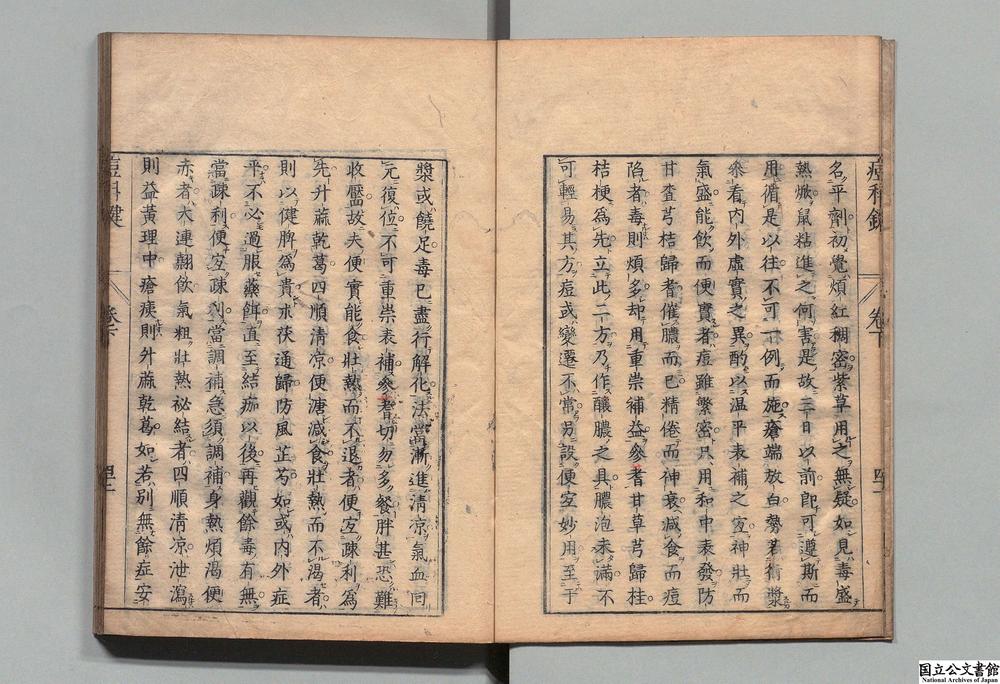 名平劑初覺煩紅稠密紫草用之無疑如見毒盛
熱熾鼠粘進之何害是故三日以前卽可遵斯而
用循是以往不可一例而施瘡端放白勢若衝漿
叅看內外虛實之異酌以溫平表補之宜神壯而
氣盛能飮而便實者痘雖繁密只用和中表發防
甘査芎桔歸者催膿而已精倦而神衰減食而痘
陷者毒則煩多却用重崇補益參耆甘草芎歸桂
桔梗爲先立此二方乃作釀膿之具膿泡未滿不
可輕易其方痘或變遷不常另設便宜妙用至于
痘科鍵 卷下
漿或饒足毒已盡行解化法當漸進淸凉氣血回
元復位不可重崇表補參耆切勿多餐胖甚恐難
收靨故夫便實能食壯熱而不退者便宜疎利爲
先升蔴乾葛四順淸凉便溏減食壯熱而不渴者
則以健脾爲貴朮茯通歸防風芷芍如或內外症
平不必過服藥餌直至結痂以後再觀餘毒有無
當疎利便宜疎利當調補急須調補身熱煩渴便
赤者大連翹飮氣粗壯熱祕結者四順淸凉泄瀉
則益黃理中瘡痍則外蔴乾葛如若別無餘症安
痘科鍵 卷下
国立公文書館
National Archives of Japan